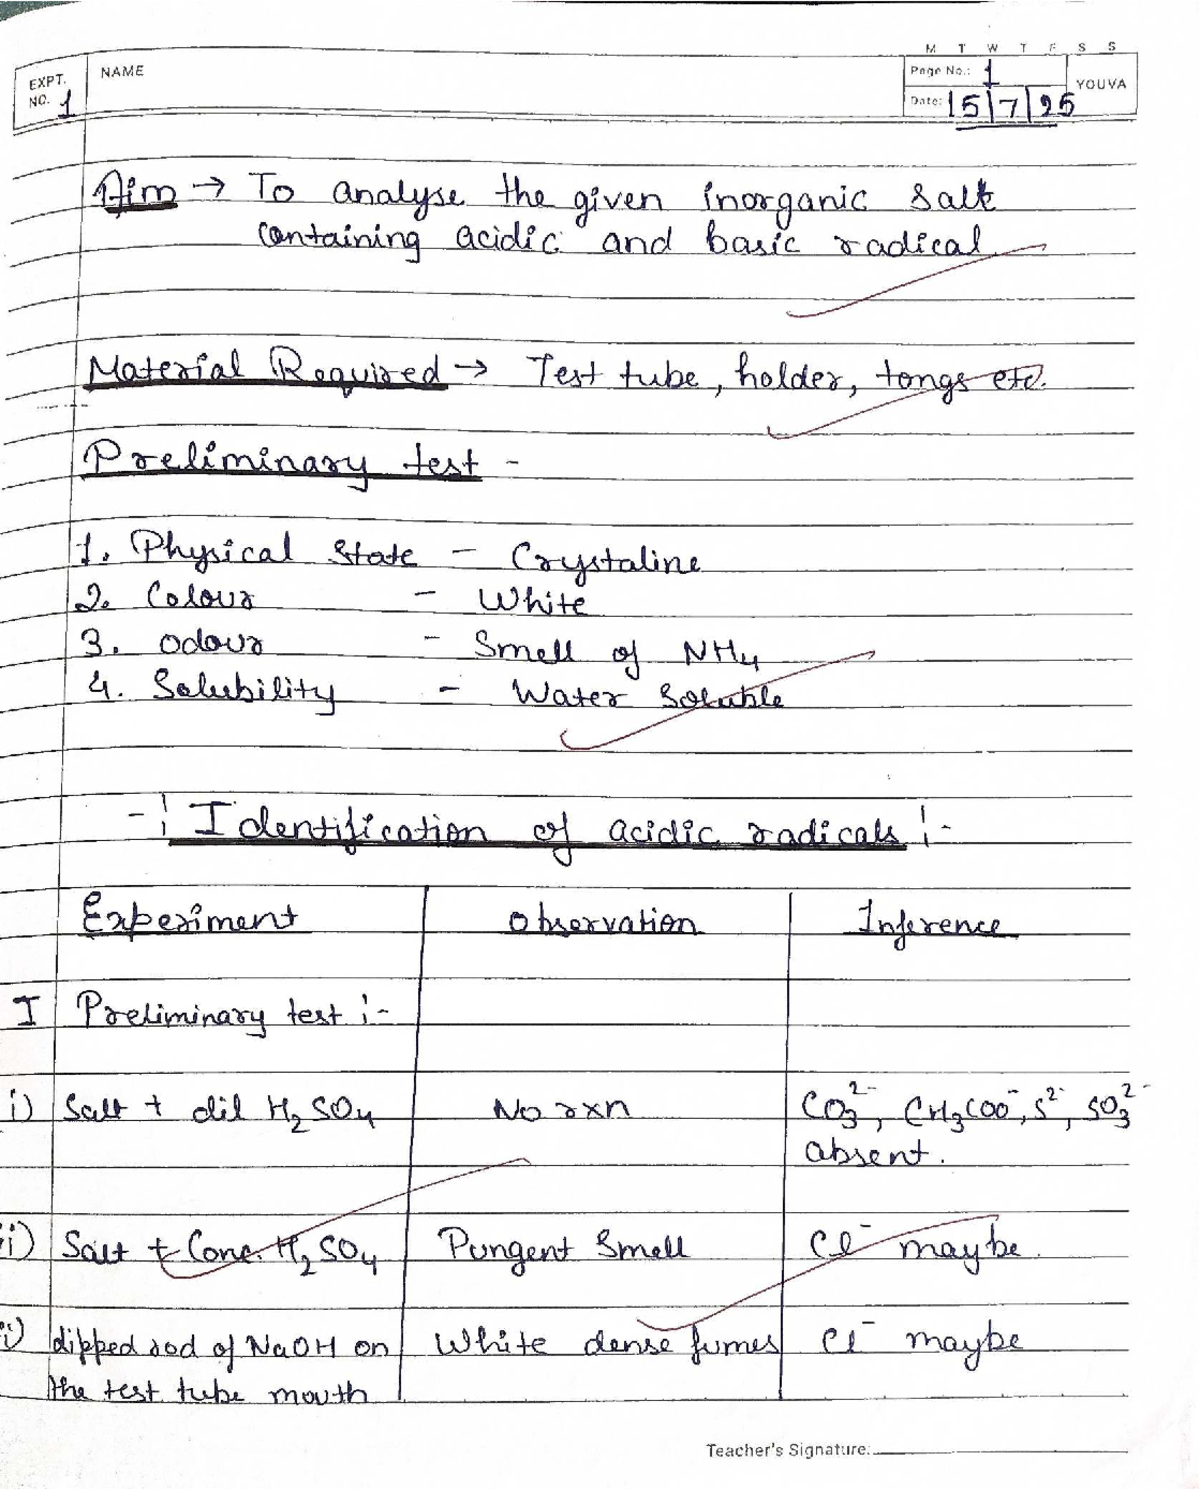 M T W T F S S
EXPT. NO. 1 NAME Page No.: 1 YOUVA
Date: 15/7/25
Aim → To analyse the given inorganic salt
containing acidic and basic radical
Material Required → Test tube, holder, tongs etc.
Preliminary test -
1. Physical State - Crystaline
2. Colour - White
3. Odour - Smell of NH4
4. Solubility - Water Soluble
-: Identification of acidic radicals :-
Experiment Observation Inference
I Preliminary test :-
i) Salt + dil H2SO4 No rxn CO3²⁻, CH3COO⁻, S²⁻, SO3²⁻
absent.
ii) Salt + Conc. H2SO4 Pungent Smell Cl⁻ maybe.
i) dipped rod of NaOH on White dense fumes Cl⁻ maybe
the test tube mouth
Teacher's Signature: